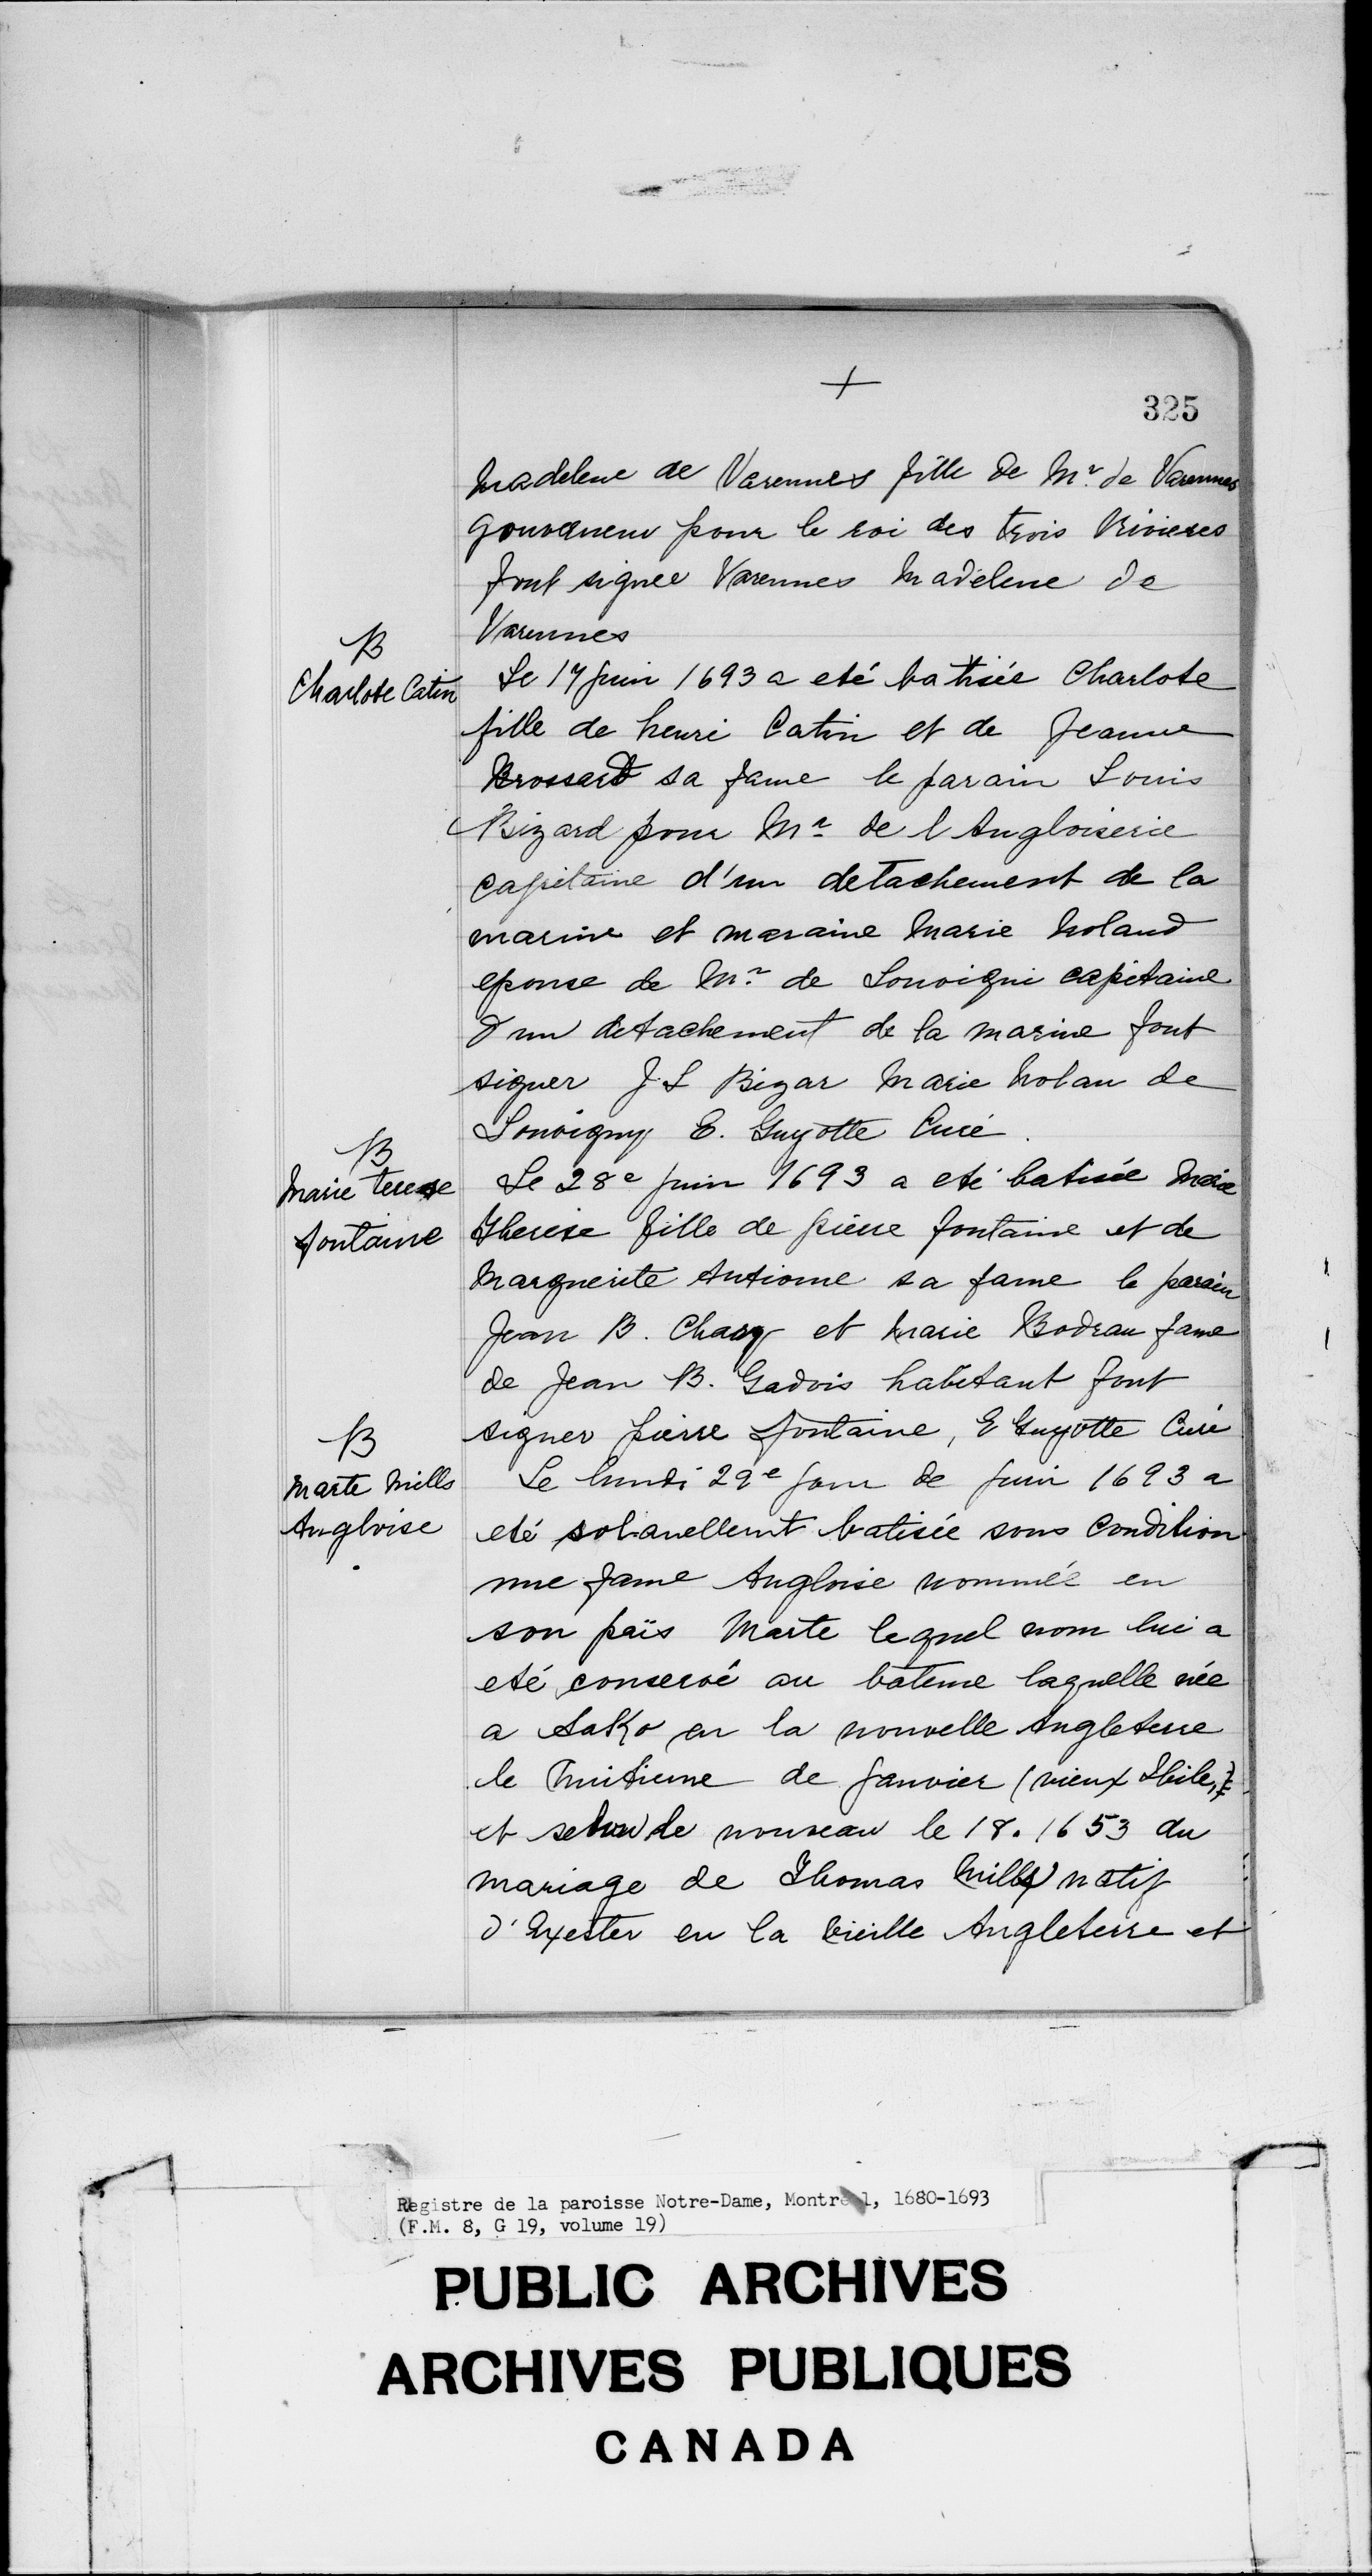 +
325
Madelene de Varennes fille de Mr. de Varennes
gouverneur pour le roi des trois Rivieres
font signee Varennes Madelene de
Varennes
B
Charlote Catin
Le 17 juin 1693 a eté batisée Charlote
fille de henri Catin et de Jeanne
Brossard sa fame le parain Louis
Bizard pour Mr de l Angloiserie
capitaine d'un detachement de la
marine et maraine Marie Noland
epouse de Mr. de Louvigni capitaine
d un detachement de la marine font
signer J. L Bizar Marie Nolan de
Louvigny E. Guyotte Curé.
B
Marie terese
fontaine
Le 28e juin 1693 a eté batisée Marie
Therese fille de pierre fontaine et de
Marguerite Antiome sa fame le parain
Jean B. Chary et Marie Bodrau fame
de Jean B. Gadois habitant font
signer pierre fontaine, E Guyotte Curé
B
Marte Mills
Angloise
Le lundi 29e jour de juin 1693 a
eté batisée sous condition
une fame Angloise nommée en
son païs Marte lequel nom lui a
eté conservé au bateme laquelle née
a Sako en la nouvelle Angleterre
le huitieme de janvier (vieux Stile,)
et selon le nouveau le 18. 1653 du
mariage de Thomas Mills natif
d'Exester en la vieille Angleterre et
Registre de la paroisse Notre-Dame, Montréal, 1680-1693
(F.M. 8, G 19, volume 19)
PUBLIC ARCHIVES
ARCHIVES PUBLIQUES
CANADA